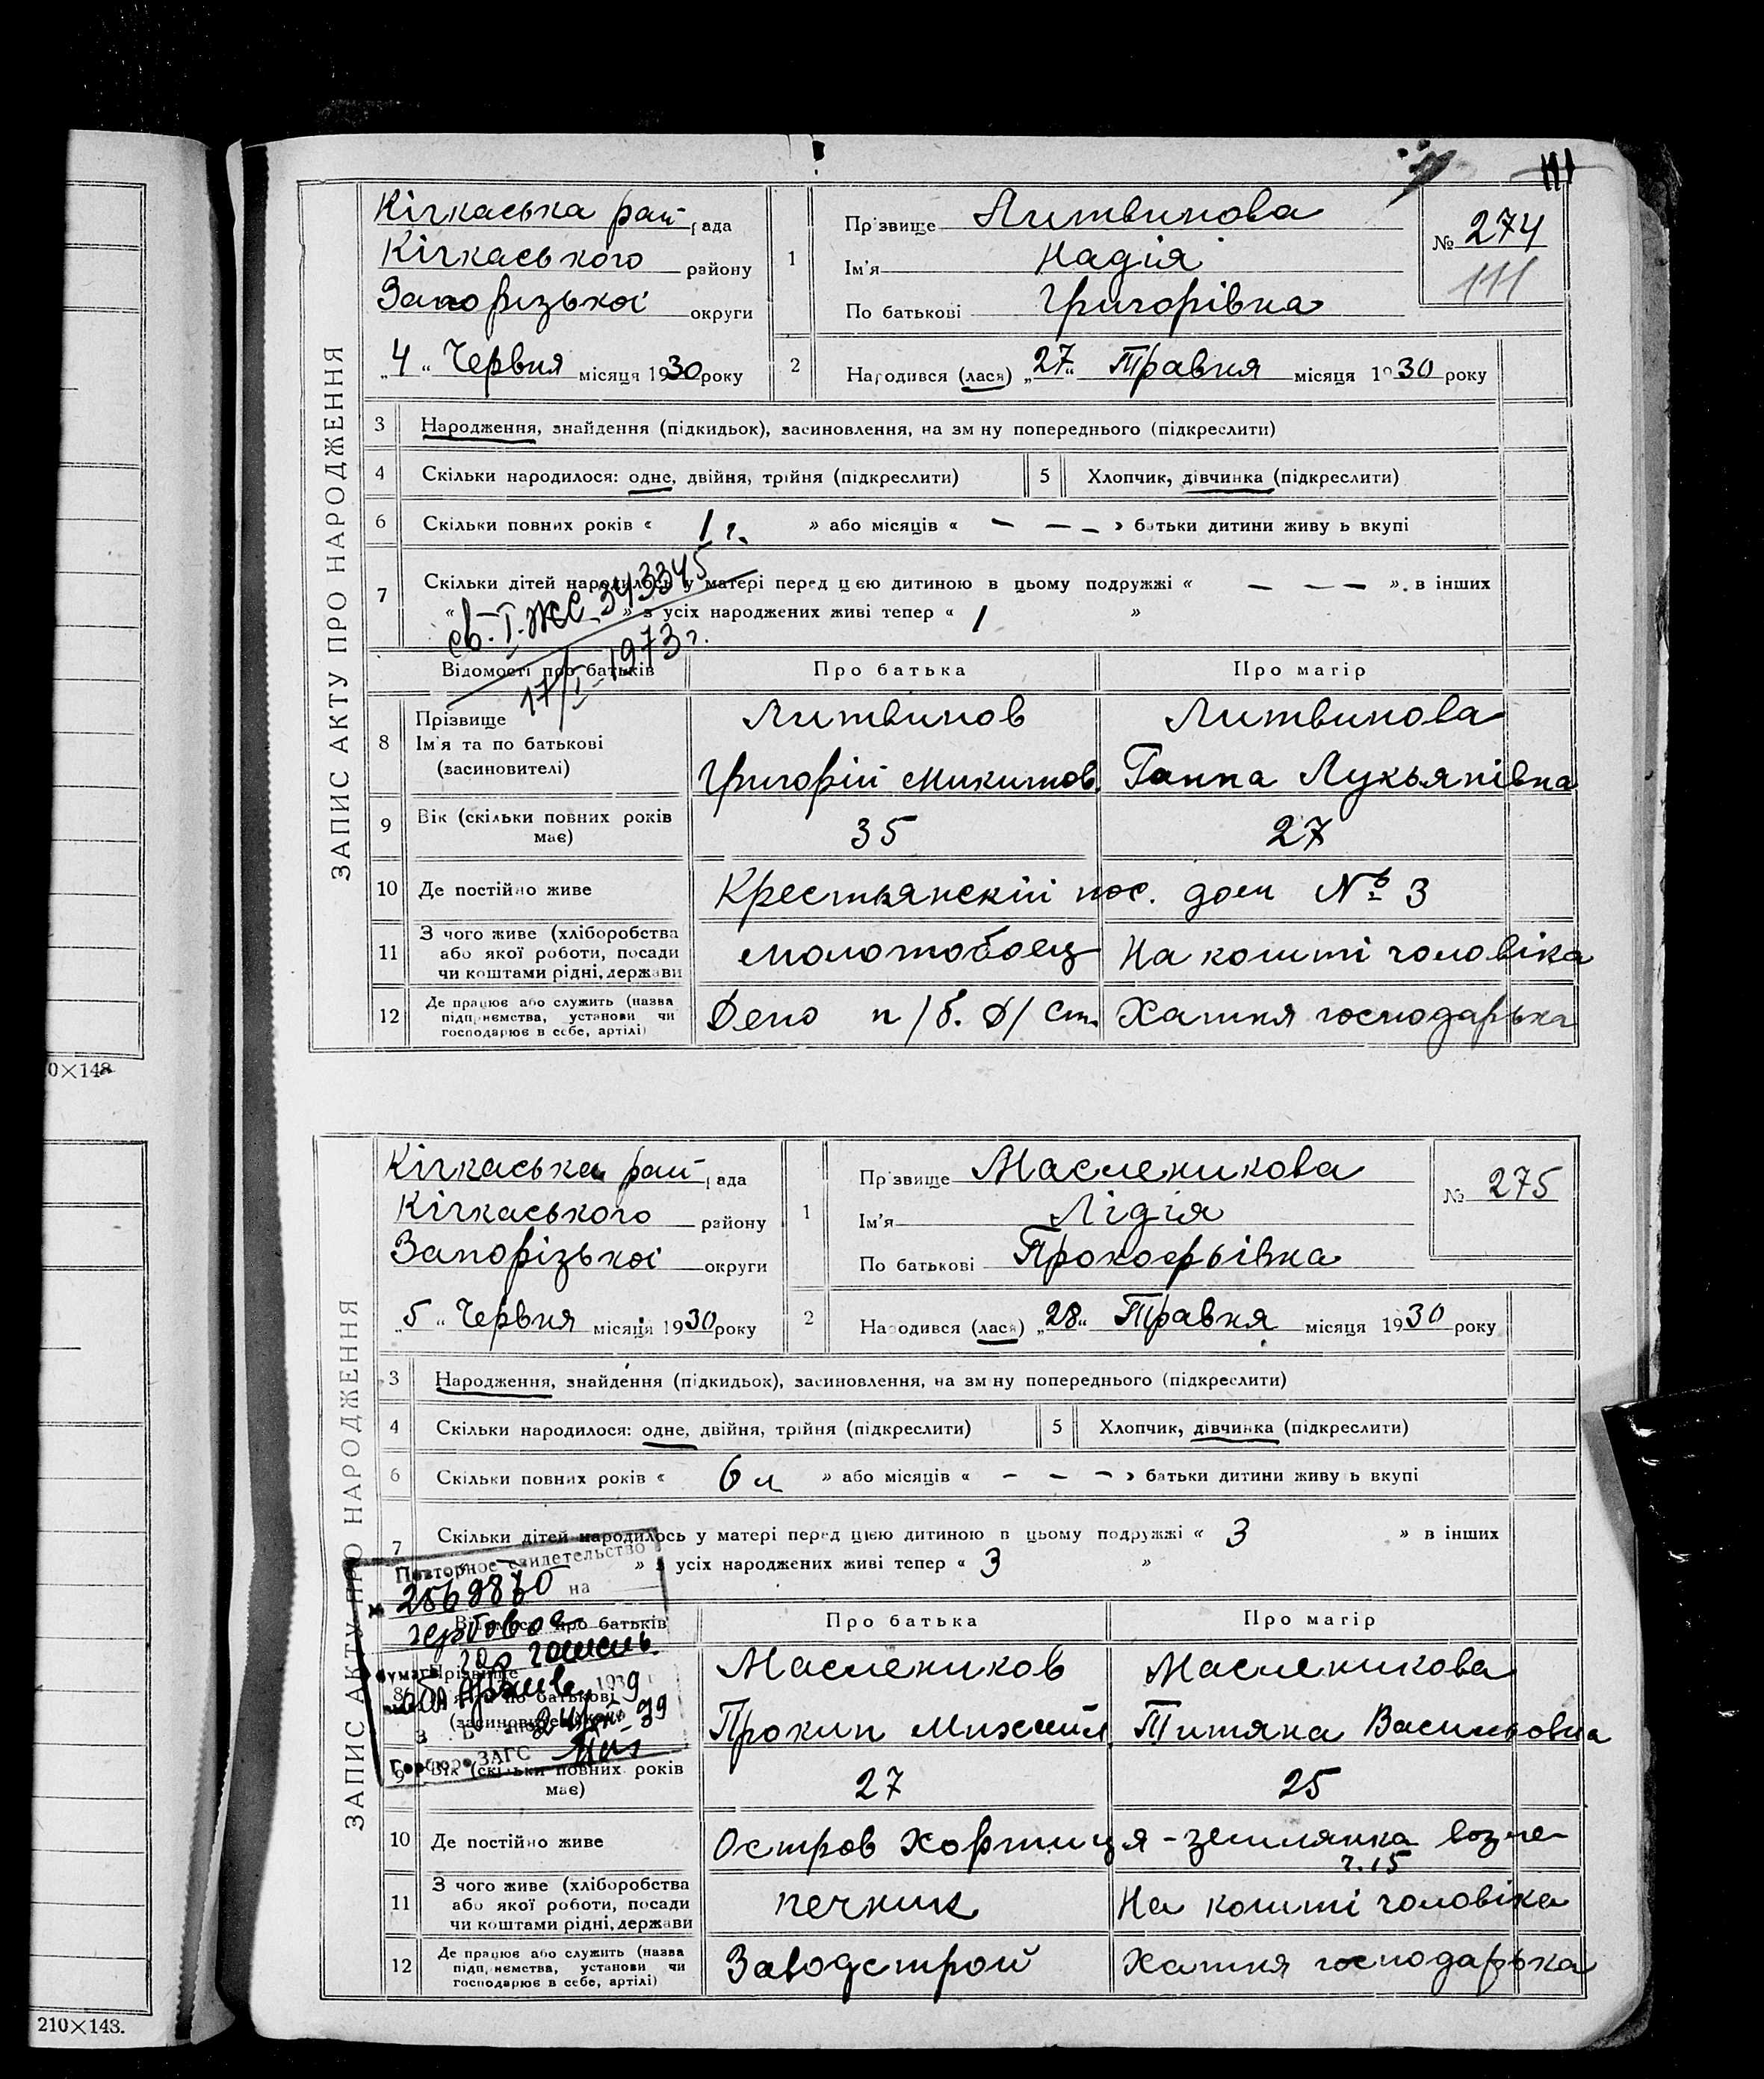 111
ЗАПИС АКТУ ПРО НАРОДЖЕННЯ
Кічкаська рай рада
Кічкаського району
Запорізької округи
„4“ Червня місяця 1930 року
1 Прізвище Литвинова
Ім'я Надія
По батькові Григорівна
№ 274
111
2 Народився (лася) „27“ Травня місяця 1930 року
3 Народження, знайдення (підкидьок), засиновлення, на зміну попереднього (підкреслити)
4 Скільки народилося: одне, двійня, трійня (підкреслити) 5 Хлопчик, дівчинка (підкреслити)
6 Скільки повних років « 1 г. » або місяців « — — — » батьки дитини живуть вкупі
7 Скільки дітей народилось у матері перед цією дитиною в цьому подружжі « — — — » в інших
« » з усіх народжених живі тепер « 1 »
св. І. ЖС 3413345
17/I – 1973 г.
Відомості про батьків Про батька Про матір
8 Прізвище Литвинов Литвинова
Ім'я та по батькові
(засиновителі) Григорій Микитов. Ганна Лукьянівна
9 Вік (скільки повних років має) 35 27
10 Де постійно живе Крестьянскій пос. дом № 3
11 З чого живе (хліборобства
або якої роботи, посади
чи коштами рідні, держави молотобоец На кошті чоловіка
12 Де працює або служить (назва
підприємства, установи чи
господарює в себе, артілі) Депо п/б. Д/ Ст. Хатня господарька
0×148
ЗАПИС АКТУ ПРО НАРОДЖЕННЯ
Кічкаська рай рада
Кічкаського району
Запорізької округи
„5“ Червня місяця 1930 року
1 Прізвище Маслєникова
Ім'я Лідія
По батькові Прокофьівна
№ 275
2 Народився (лася) „28“ Травня місяця 1930 року
3 Народження, знайдення (підкидьок), засиновлення, на зміну попереднього (підкреслити)
4 Скільки народилося: одне, двійня, трійня (підкреслити) 5 Хлопчик, дівчинка (підкреслити)
6 Скільки повних років « 6 л » або місяців « — — — » батьки дитини живуть вкупі
7 Скільки дітей народилось у матері перед цією дитиною в цьому подружжі « 3 » в інших
» з усіх народжених живі тепер « 3 »
Повторное свидетельство
на
гербовой
ЗАГС
Відомості про батьків Про батька Про матір
8 Прізвище Маслеников Масленикова
Ім'я та по батькові
(засиновителі) Прокип Михайл. Титяна Васильовна
9 Вік (скільки повних років має) 27 25
10 Де постійно живе Остров Хортиця - землянка возле
ч. 15
11 З чого живе (хліборобства
або якої роботи, посади
чи коштами рідні, держави печник На кошті чоловіка
12 Де працює або служить (назва
підприємства, установи чи
господарює в себе, артілі) Заводстрой Хатня господарька
210×143.